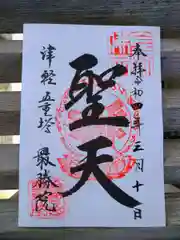 奉拝 令和 年 月十日
聖天
津軽 五重塔 最勝院